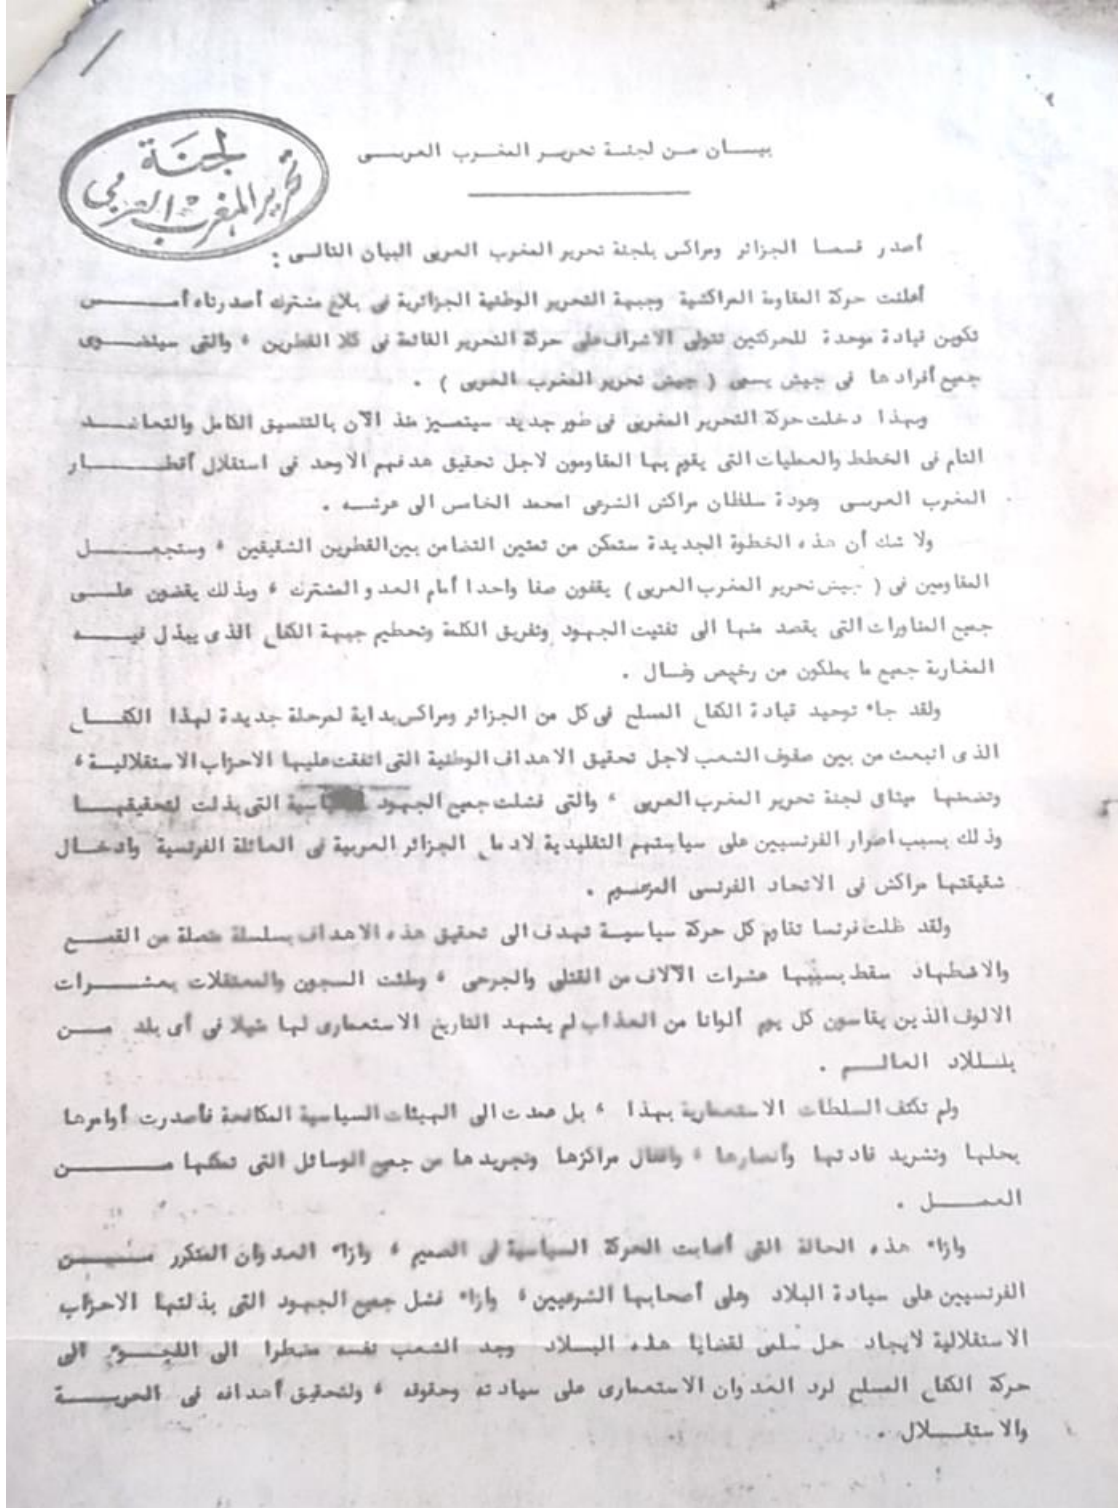 لجنة
تحرير المغرب العربي
بيـــان مـن لجنـة تحريـر المغـرب العربـى
أصدر قسما الجزائر ومراكش بلجنة تحرير المغرب العربى البيان التالـى :
أعلنت حركة المقاومة المراكشية وجبهة التحرير الوطنية الجزائرية فى بلاغ مشترك أصدرتاه أمـــــس
تكوين قيادة موحدة للحركتين تتولى الاشراف على حركة التحرير القائمة فى كلا القطرين ، والتى سينضــوى
جميع أفرادها فى جيش يسمى ( جيش تحرير المغرب العربى ) .
وبهذا دخلت حركة التحرير المغربى فى طور جديد سيتميز منذ الآن بالتنسيق الكامل والتعاضــد
التام فى الخطط والعمليات التى يقوم بها المقاومون لاجل تحقيق هدفهم الاوحد فى استقلال أقطــــار
المغرب العربـى وعودة سلطان مراكش الشرعى امحمد الخامس الى عرشــه .
ولا شك أن هذه الخطوة الجديدة ستمكن من تمتين التضامن بين القطرين الشقيقين ، وستجعـــل
المقاومين فى ( جيش تحرير المغرب العربى ) يقفون صفا واحدا أمام العدو المشترك ، وبذلك يقضون علــى
جميع المناورات التى يقصد منها الى تفتيت الجهود وتفريق الكلمة وتحطيم جبهة الكفاح الذى يبذل فيــه
المغاربة جميع ما يملكون من رخيص وغـال .
ولقد جاء توحيد قيادة الكفاح المسلح فى كل من الجزائر ومراكش بداية لمرحلة جديدة لهذا الكفــاح
الذى انبعث من بين صفوف الشعب لاجل تحقيق الاهداف الوطنية التى اتفقت عليها الاحزاب الاستقلاليـة ،
وتضمنها ميثاق لجنة تحرير المغرب العربى ، والتى فشلت جميع الجهود السياسية التى بذلت لتحقيقهــا
وذلك بسبب اصرار الفرنسيين على سياستهم التقليدية لادماج الجزائر العربية فى العائلة الفرنسية وادخــال
شقيقتها مراكش فى الاتحاد الفرنسى المزعـوم .
ولقد ظلت فرنسا تقاوم كل حركة سياسيـة تهدف الى تحقيق هذه الاهداف بسلسلة متصلة من القمــع
والاضطهاد سقط بسببها عشرات الآلاف من القتلى والجرحى ، وملئت السجون والمعتقلات بعشـــرات
الالوف الذين يقاسون كل يوم ألوانا من العذاب لم يشهد التاريخ الاستعمارى لها مثيلا فى أى بلد مــن
بلــلاد العالـــم .
ولم تكتف السلطات الاستعمارية بهذا ، بل عمدت الى الهيئات السياسية المكافحة فأصدرت أوامرها
بحلها وتشريد قادتها وأنصارها ، واقفال مراكزها وتجريدها من جميع الوسائل التى تمكنها مـــــن
العمـــل .
وازاء هذه الحالة التى أصابت الحركة السياسية فى الصميم ، وازاء العدوان المتكرر مــــن
الفرنسيين على سيادة البلاد وعلى أصحابها الشرعيين ، وازاء فشل جميع الجهود التى بذلتها الاحزاب
الاستقلالية لايجاد حل سلمى لقضايا هذه البــلاد وجد الشعب نفسه مضطرا الى اللجــوء الى
حركة الكفاح المسلح لرد العدوان الاستعمارى على سيادته وحقوقه ، ولتحقيق أهدافه فى الحريـــة
والاستقــلال .